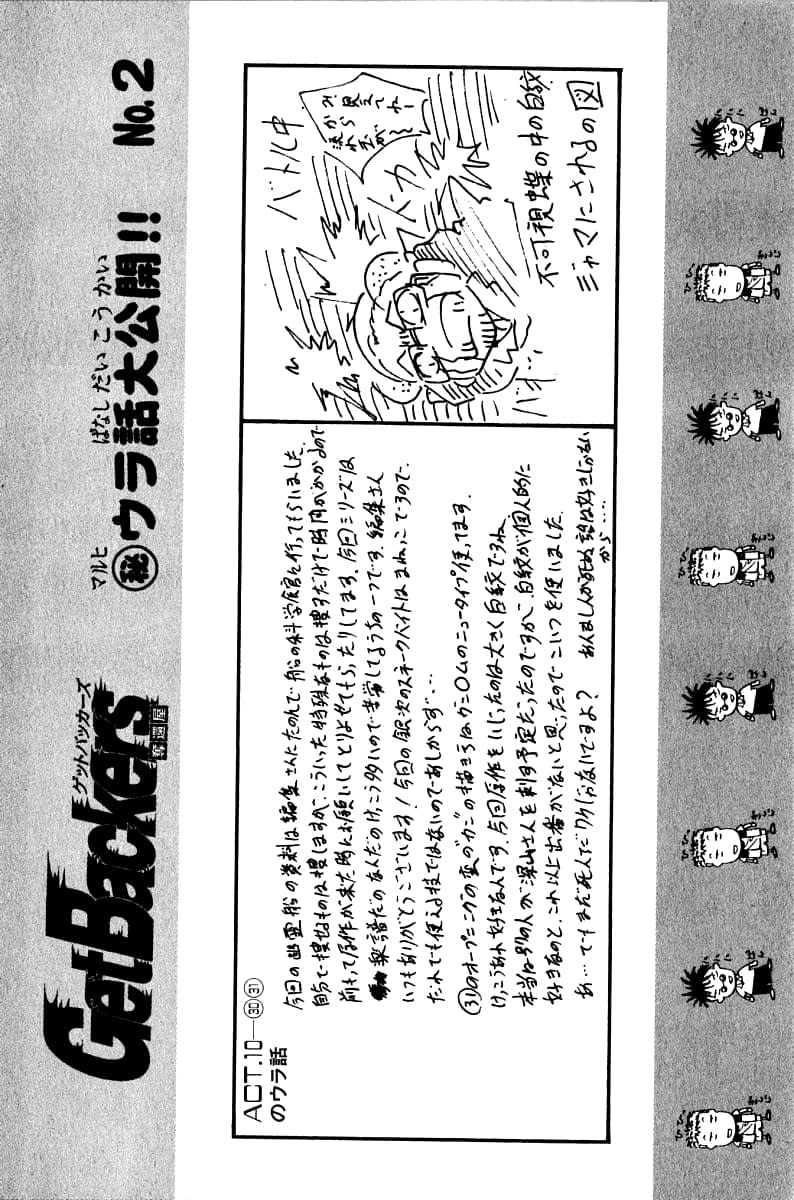 GetBackers
ゲットバッカーズ
奪還屋
マルヒ
㊙ウラ話大公開!!
ばなしだいこうかい
No.2
ACT.10―㉚㉛
のウラ話
今回の幽霊船の資料は編集さんにたのんで船の科学館に行ってもらいました。
自分で捜せるものは捜しますが、こういった特殊なものは捜すだけで時間がかかるので
前もって原作が来た時にお願いしてとりよせてもらったりしてます。今回シリーズは
楽譜だのなんだのけっこう多いので
編集さん
いつもありがとうございます!今回の銀次のスネークバイトはまねっこですので、
だれでも使える技ではないのであしからず…
㉛のオープニングの変な"かこ"の描き文字は
のニュータイプ使ってます。
けっこうあれ好きなんです。今回原作をいじったのは大きく白紋ですね。
本当は別の人が深山さんを刺す予定だったのですが、白紋が個人的に
好きなのと、これ以上出番がないと思ったのでこいつを使いました。
あ…でもまだ死んだワケじゃないですよ?
あんまし人が死ぬ話は好きじゃない
から……
バトル中
見えてねーみたいだから
流れ玉が〜
バカ
バオ…
不可視蝶の中の白紋
ジャマにされるの図